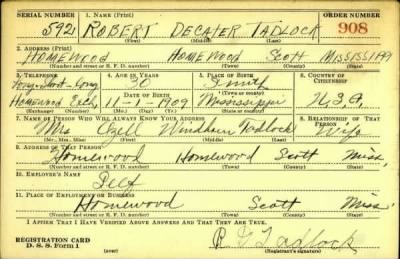 SERIAL NUMBER 1. NAME (Print) ORDER NUMBER
592 ROBERT DECATER TADLOCK 908
(First) (Middle) (Last)
2. ADDRESS (Print)
HOMEWOOD HOMEWOOD SCOTT MISSISSIPPI
(Number and street or R. F. D. number) (Town) (County) (State)
3. TELEPHONE 4. AGE IN YEARS 5. PLACE OF BIRTH 6. COUNTRY OF CITIZENSHIP
Long-Short-Long 30 Smith
DATE OF BIRTH (Town or county)
Homewood Exch. 11-1-1909 Mississippi U.S.A.
(Exchange) (Number) (Mo.) (Day) (Yr.) (State or country)
7. NAME OF PERSON WHO WILL ALWAYS KNOW YOUR ADDRESS 8. RELATIONSHIP OF THAT PERSON
Mrs Ozell Windham Tadlock Wife
(Mr., Mrs., Miss) (First) (Middle) (Last)
9. ADDRESS OF THAT PERSON
Homewood Homewood Scott Miss.
(Number and street or R. F. D. number) (Town) (County) (State)
10. EMPLOYER'S NAME
Self
11. PLACE OF EMPLOYMENT OR BUSINESS
Homewood Scott Miss.
(Number and street or R. F. D. number) (Town) (County) (State)
I AFFIRM THAT I HAVE VERIFIED ABOVE ANSWERS AND THAT THEY ARE TRUE.
REGISTRATION CARD R Tadlock
D. S. S. Form 1 (over) (Registrant's signature)